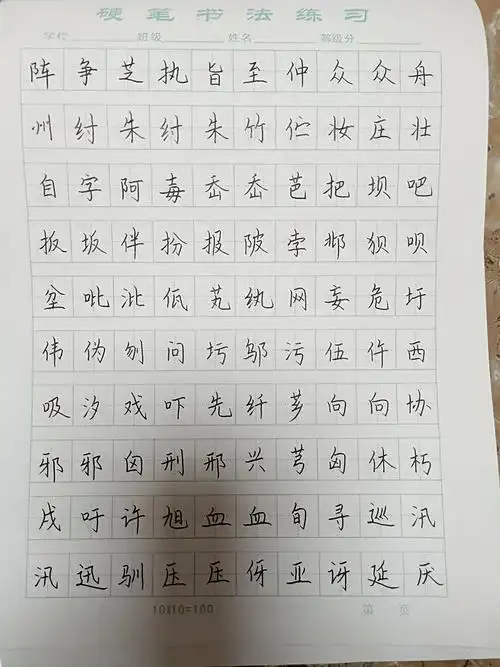 硬笔书法练习
学校 班级 姓名 等级分
阵争芝执旨至仲众众舟
州纣朱纣朱竹伫妆庄壮
自字阿毒岙岙芭把坝吧
扳坂伴扮报陂孛邶狈呗
坌吡沘低芄纨网妄危圩
伟伪刎问圬邬污伍仵西
吸汐戏吓先纤芗向向协
邪邪囟刑邢兴芎匈休朽
戌吁许旭血血旬寻巡汛
汛迅驯压压伢亚讶延厌
10X10=100 第 页